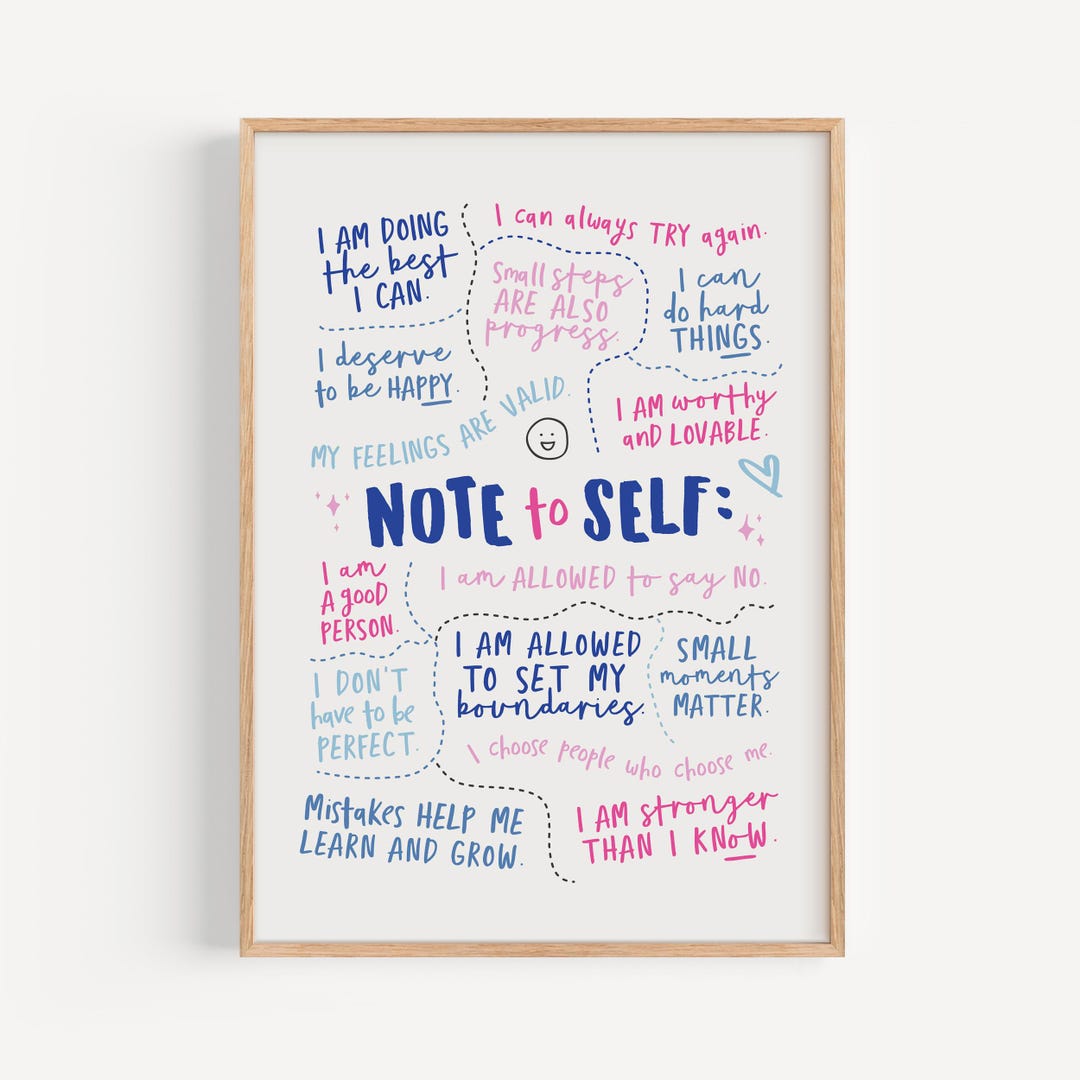 I AM DOING
the best
I CAN.
I can always TRY again.
Small steps
ARE ALSO
progress.
I can
do hard
THINGS.
I deserve
to be HAPPY.
I AM worthy
and LOVABLE.
MY FEELINGS ARE VALID.
NOTE to SELF:
I am
A good
PERSON.
I am ALLOWED to say NO.
I AM ALLOWED
TO SET MY
boundaries.
SMALL
moments
MATTER.
I DON'T
have to be
PERFECT.
I choose people who choose me.
Mistakes HELP ME
LEARN AND GROW.
I AM stronger
THAN I KNOW.